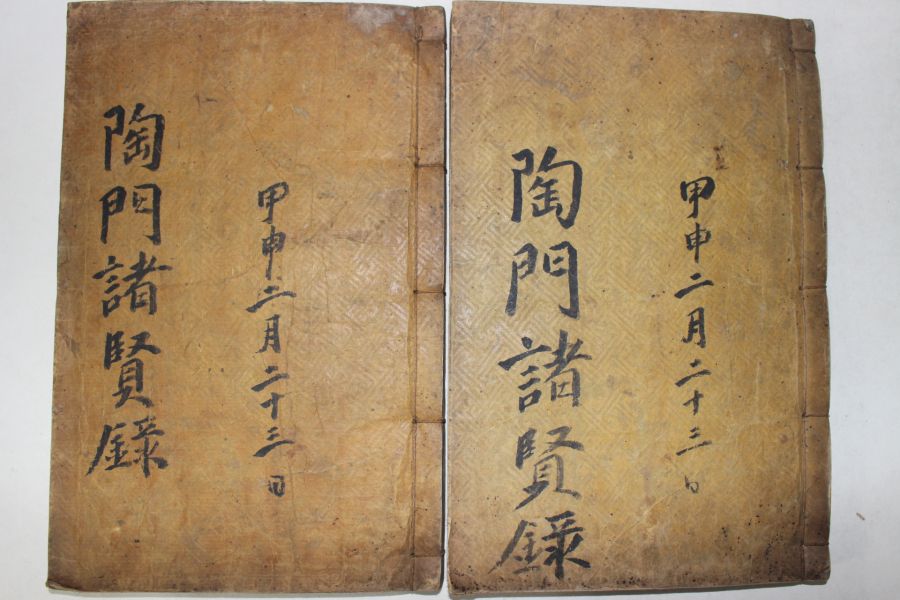 陶門諸賢錄
甲申二月二十三日
陶門諸賢錄
甲申二月二十三日